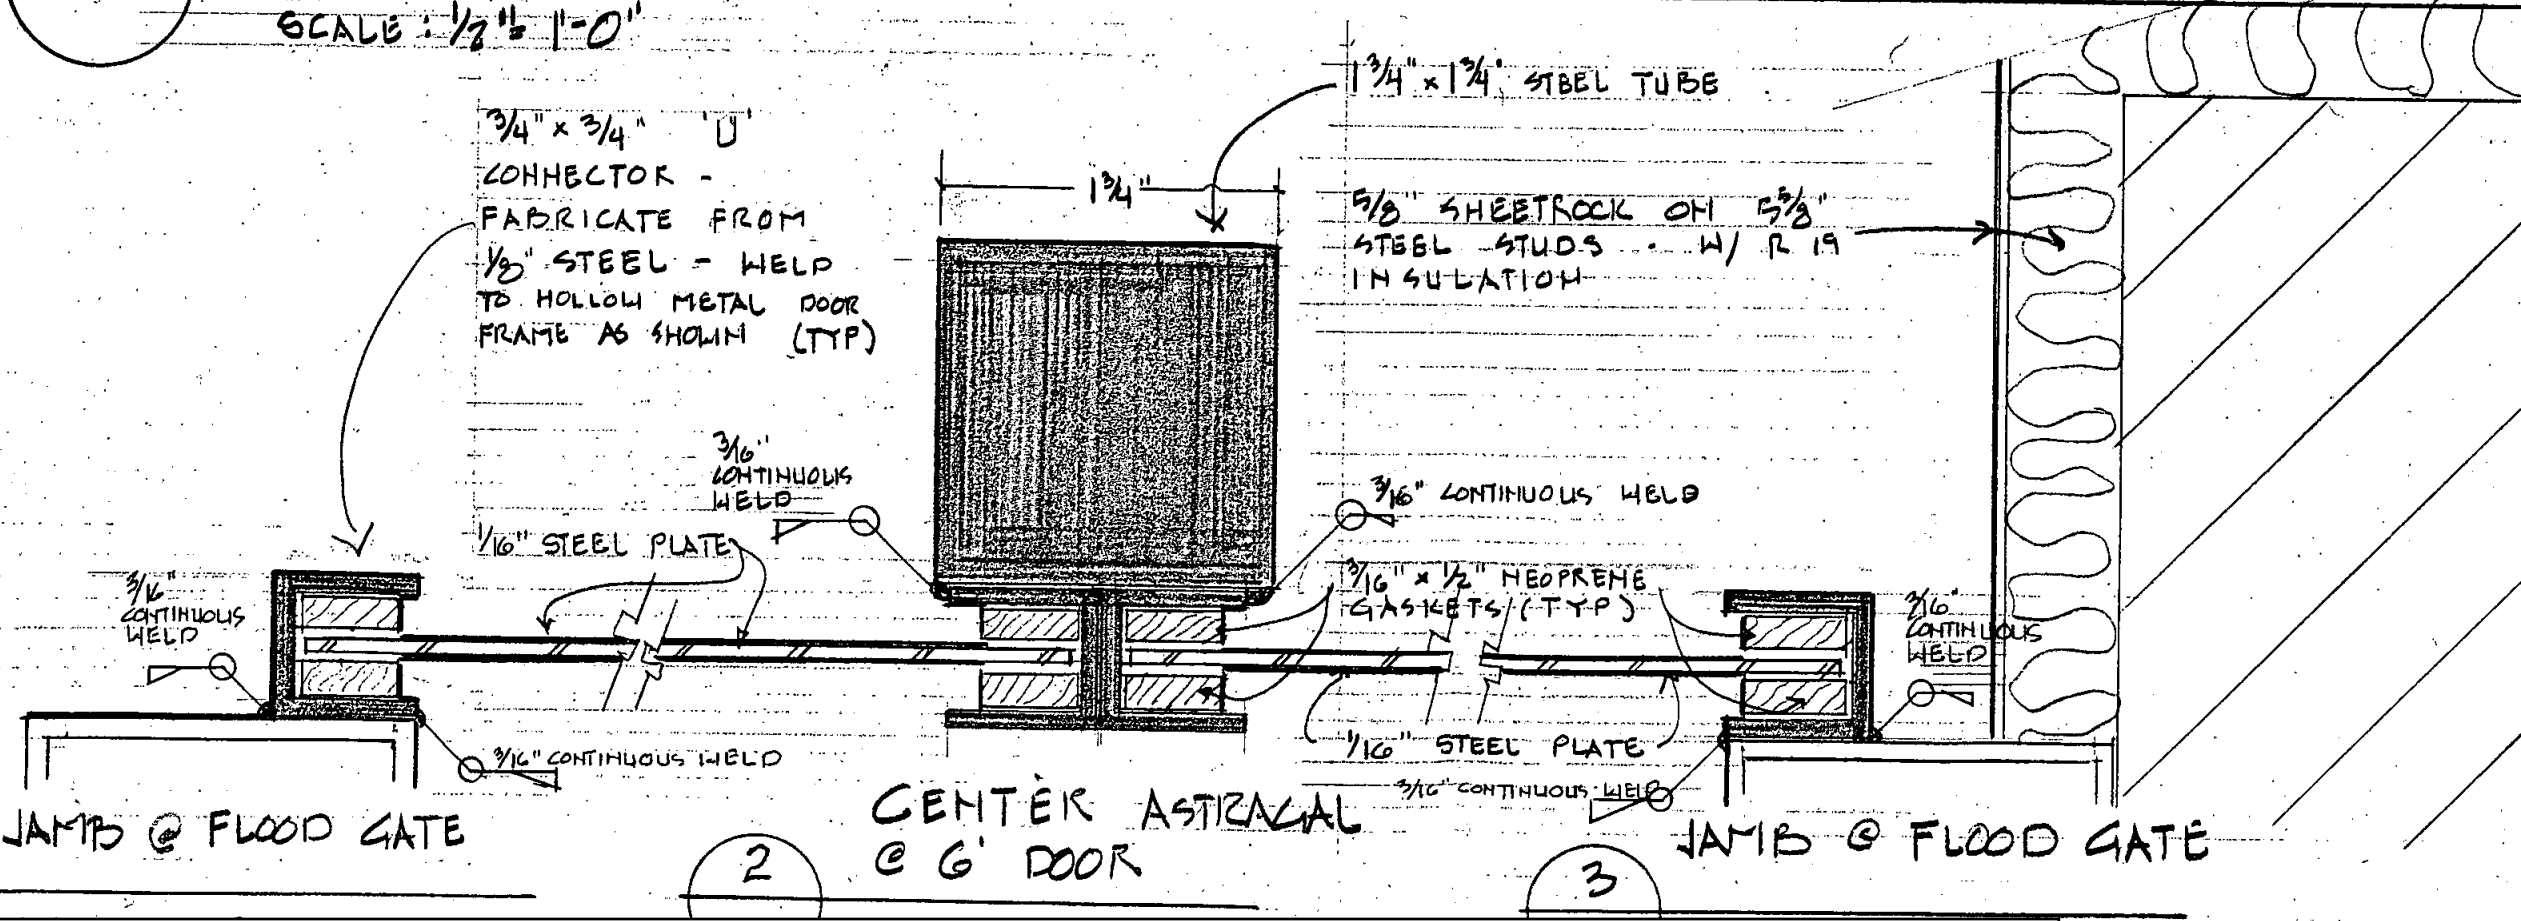 SCALE : 1/2" = 1'-0"
3/4" x 3/4" 'U'
CONNECTOR -
FABRICATE FROM
1/8" STEEL - WELD
TO HOLLOW METAL DOOR
FRAME AS SHOWN (TYP)
1 3/4" x 1 3/4" STEEL TUBE
1 3/4"
5/8" SHEETROCK ON 5 5/8"
STEEL STUDS - W/ R 19
INSULATION
3/16"
CONTINUOUS
WELD
1/16" STEEL PLATE
3/16" CONTINUOUS WELD
3/16" x 1/2" NEOPRENE
GASKETS (TYP)
3/16"
CONTINUOUS
WELD
3/16"
CONTINUOUS
WELD
3/16" CONTINUOUS WELD
1/16" STEEL PLATE
3/16" CONTINUOUS WELD
JAMB @ FLOOD GATE
2
CENTER ASTRAGAL
@ 6' DOOR
3
JAMB @ FLOOD GATE